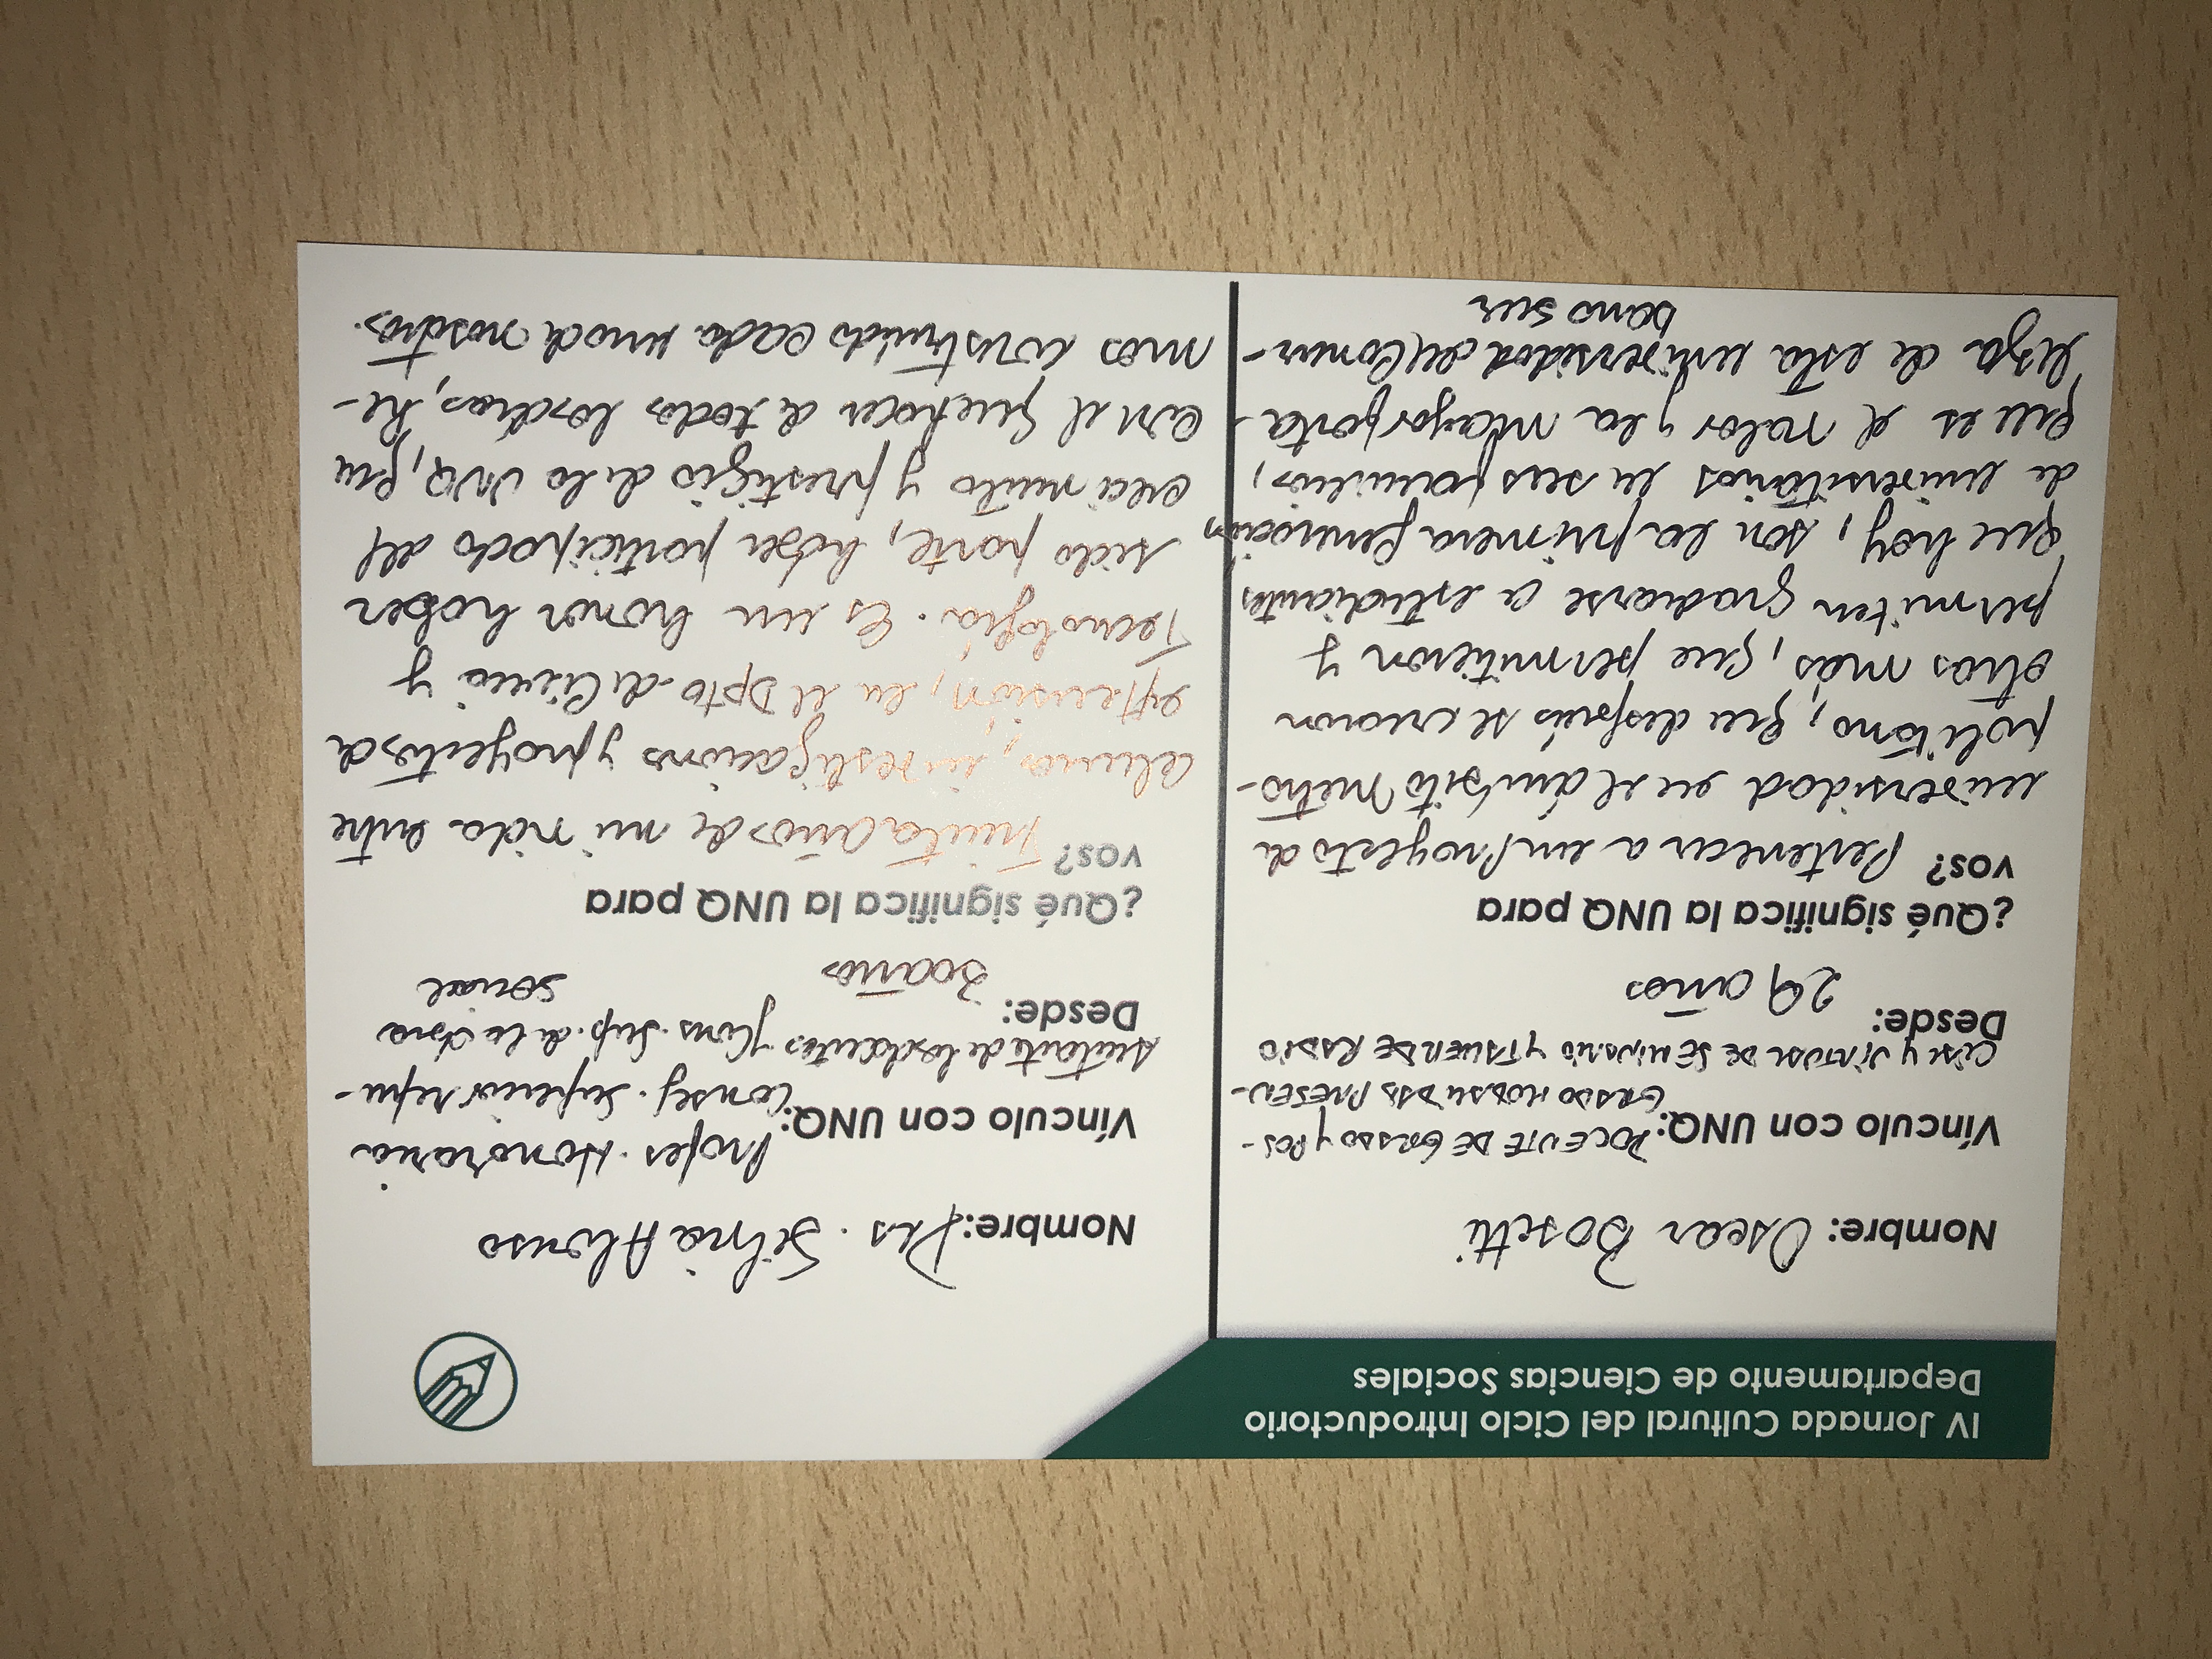 IV Jornada Cultural del Ciclo Introductorio
Departamento de Ciencias Sociales
Nombre: Oscar Bosetti
Vínculo con UNQ: DOCENTE DE GRADO Y POS-
GRADO MODALIDAD PRESEN-
CIAL Y VIRTUAL DE SEMINARIO Y TALLER DE RADIO
Desde: 29 años
¿Qué significa la UNQ para
vos? Pertenecer a un Proyecto de
universidad en el ámbito metro-
politano, que después se crearon
otras más, que permitieron y
permiten graduarse a estudiantes
que hoy, son la primera generación
de universitarios en sus familias,
que es el valor y la mayor forta-
leza de esta universidad del Conur-
bano Sur
Nombre: Silvia Alonso
Vínculo con UNQ: Profes. Honoraria
Consej. Superior repre-
sentante de los docentes y Cons. Sup. de la Obra
Social
Desde: 30 años
¿Qué significa la UNQ para
vos? Treinta años de mi vida entre
alumnos, investigaciones y proyectos de
extensión, en el Dpto. de Ciencia y
Tecnología. Es un honor haber
sido parte, haber participado del
crecimiento y prestigio de la UNQ, que
con el quehacer de todos los días, he-
mos construido cada uno de nosotros.